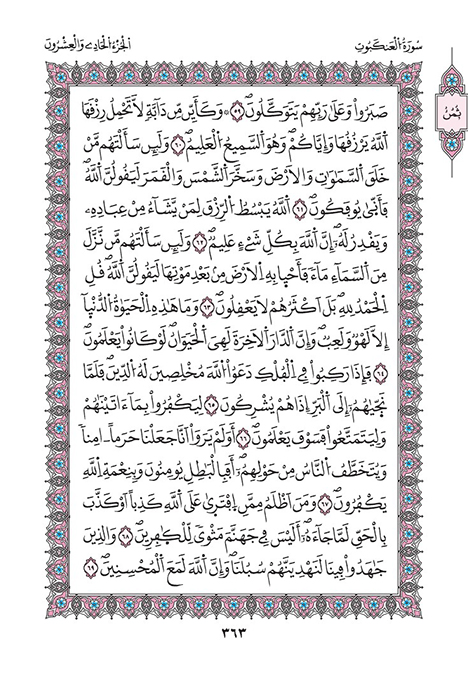 سُورَةُ الْعَنكَبُوتِ
الْجُزْءُ الْحَادِي وَالْعِشْرُونَ
ثُمُنُ
صَبَرُواْ وَعَلَىٰ رَبِّهِمْ يَتَوَكَّلُونَۖ ٥٩ ۞ وَكَأَيِّن مِّن دَآبَّةٖ لَّا تَحْمِلُ رِزْقَهَا
اَ۬للَّهُ يَرْزُقُهَا وَإِيَّاكُمْۖ وَهُوَ اَ۬لسَّمِيعُ اُ۬لْعَلِيمُۖ ٦٠ وَلَئِن سَأَلْتَهُم مَّنْ
خَلَقَ اَ۬لسَّمَٰوَٰتِ وَالَارْضَ وَسَخَّرَ اَ۬لشَّمْسَ وَالْقَمَرَ لَيَقُولُنَّ اَ۬للَّهُۖ
فَأَنّ۪ىٰ يُوفَكُونَۖ ٦١ اَ۬للَّهُ يَبْسُطُ اُ۬لرِّزْقَ لِمَنْ يَّشَآءُ مِنْ عِبَادِهِۦ
وَيَقْدِرُ لَهُۥٓۖ إِنَّ اَ۬للَّهَ بِكُلِّ شَےْءٍ عَلِيمٞۖ ٦٢ وَلَئِن سَأَلْتَهُم مَّن نَّزَّلَ
مِنَ اَ۬لسَّمَآءِ مَآءٗ فَأَحْي۪ا بِهِ اِ۬لَارْضَ مِنۢ بَعْدِ مَوْتِهَا لَيَقُولُنَّ اَ۬للَّهُۖ قُلِ
اِ۬لْحَمْدُ لِلهِۖ بَلَ اَكْثَرُهُمْ لَا يَعْقِلُونَۖ ٦٣ وَمَا هَٰذِهِ اِ۬لْحَيَوٰةُ اُ۬لدُّنْي۪آ
إِلَّا لَهْوٞ وَلَعِبٞۖ وَإِنَّ اَ۬لدَّارَ اَ۬لَاخِرَةَ لَهِيَ اَ۬لْحَيَوَانُۖ لَوْ كَانُواْ يَعْلَمُونَۖ
٦٤ فَإِذَا رَكِبُواْ فِے اِ۬لْفُلْكِ دَعَوُاْ اُ۬للَّهَ مُخْلِصِينَ لَهُ اُ۬لدِّينَۖ فَلَمَّا
نَجّ۪يٰهُمُۥٓ إِلَى اَ۬لْبَرِّ إِذَا هُمْ يُشْرِكُونَ ٦٥ لِيَكْفُرُواْ بِمَآ ءَاتَيْنَٰهُمْ
وَلِيَتَمَتَّعُواْۖ فَسَوْفَ يَعْلَمُونَۖ ٦٦ أَوَلَمْ يَرَوَاْ اَنَّا جَعَلْنَا حَرَماً اٰمِناٗ
وَيُتَخَطَّفُ اُ۬لنَّاسُ مِنْ حَوْلِهِمُۥٓۖ أَفَبِالْبَٰطِلِ يُومِنُونَ وَبِنِعْمَةِ اِ۬للَّهِ
يَكْفُرُونَۖ ٦٧ وَمَنَ اَظْلَمُ مِمَّنِ اِ۪فْتَر۪ىٰ عَلَى اَ۬للَّهِ كَذِباً اَوْ كَذَّبَ
بِالْحَقِّ لَمَّا جَآءَهُۥٓۖ أَلَيْسَ فِے جَهَنَّمَ مَثْوىٗ لِّلْكٰ۪فِرِينَۖ ٦٨ وَالذِينَ
جَٰهَدُواْ فِينَا لَنَهْدِيَنَّهُمْ سُبُلَنَاۖ وَإِنَّ اَ۬للَّهَ لَمَعَ اَ۬لْمُحْسِنِينَۖ ٦٩
٣٦٣